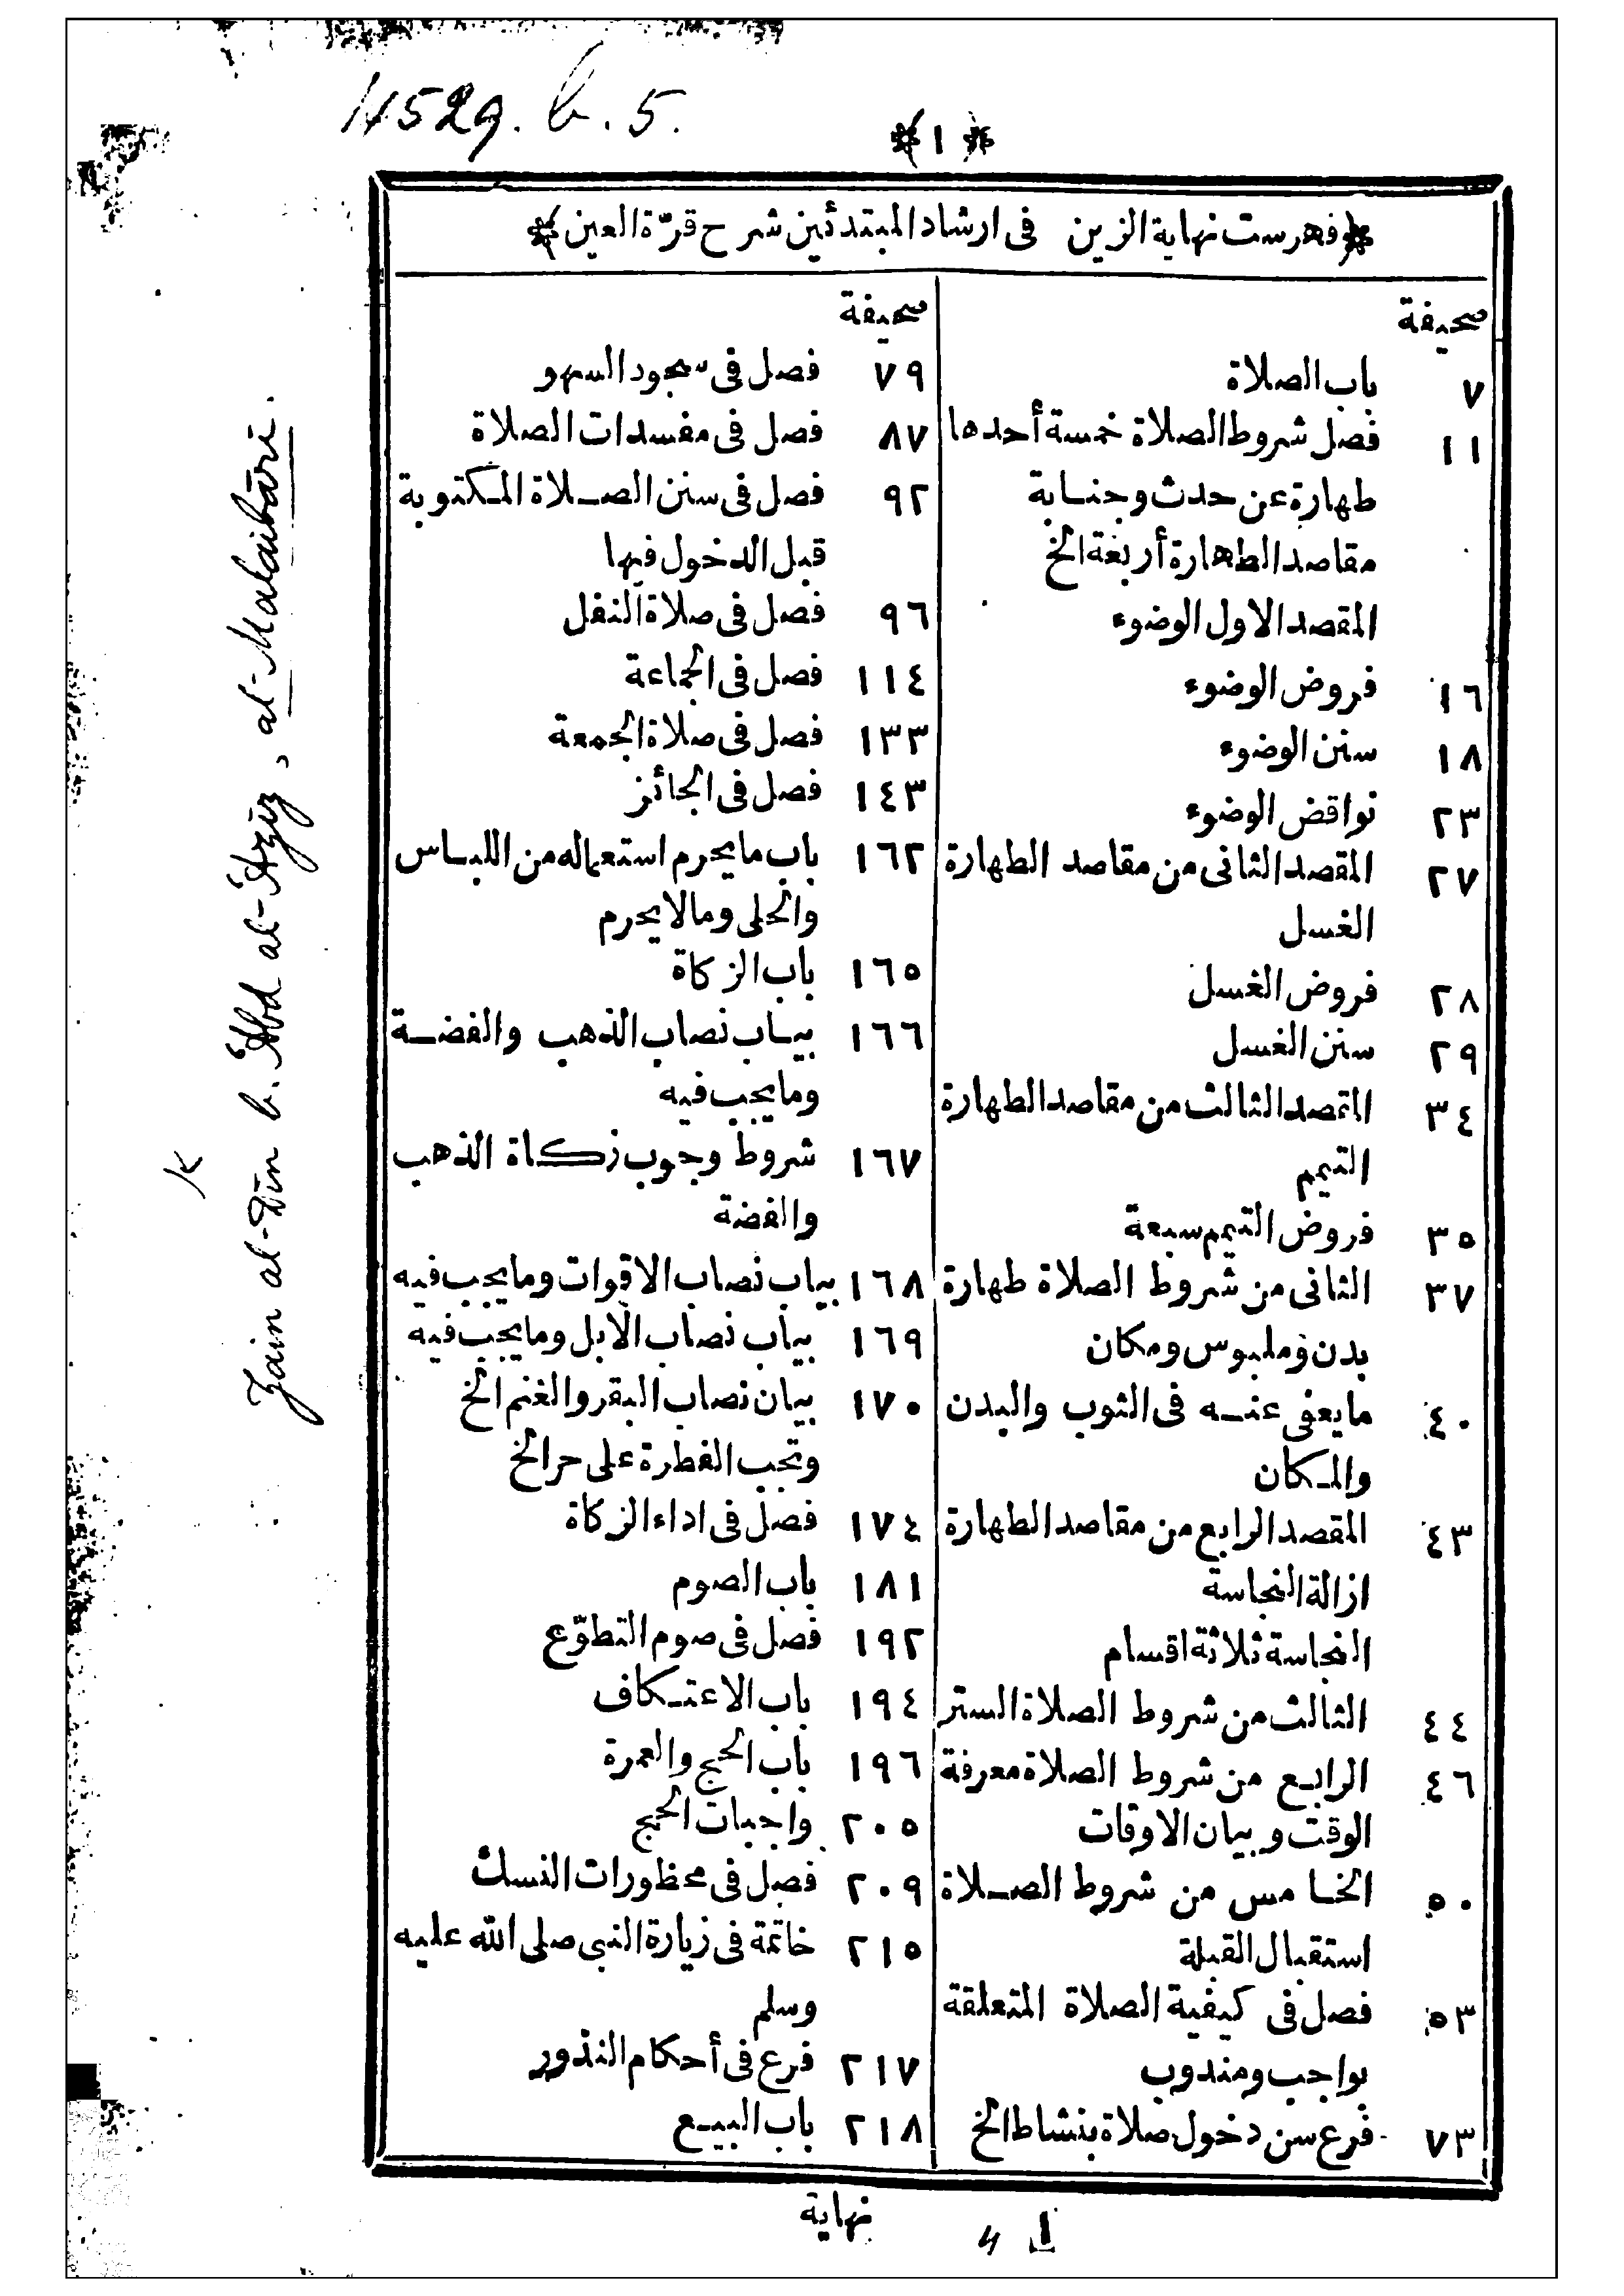 14529. b. 5.
*(١)*
*(فهرست نهاية الزين في ارشاد المبتدئين شرح قرّة العين)*
صحيفة
٧ باب الصلاة
١١ فصل شروط الصلاة خمسة أحدها
طهارة عن حدث وجنابة
مقاصد الطهارة أربعة الخ
المقصد الاول الوضوء
١٦ فروض الوضوء
١٨ سنن الوضوء
٢٣ نواقض الوضوء
٢٧ المقصد الثانى من مقاصد الطهارة
الغسل
٢٨ فروض الغسل
٢٩ سنن الغسل
٣٤ المقصد الثالث من مقاصد الطهارة
التيمم
٣٥ فروض التيمم سبعة
٣٧ الثانى من شروط الصلاة طهارة
بدن وملبوس ومكان
٤٠ ما يعفى عنه فى الثوب والبدن
والمكان
٤٣ المقصد الرابع من مقاصد الطهارة
ازالة النجاسة
النجاسة ثلاثة اقسام
٤٤ الثالث من شروط الصلاة الستر
٤٦ الرابع من شروط الصلاة معرفة
الوقت وبيان الاوقات
٥٠ الخامس من شروط الصلاة
استقبال القبلة
٥٣ فصل فى كيفية الصلاة المتعلقة
بواجب ومندوب
٧٣ فرع سن دخول صلاة بنشاط الخ
صحيفة
٧٩ فصل فى سجود السهو
٨٧ فصل فى مفسدات الصلاة
٩٢ فصل فى سنن الصلاة المكتوبة
قبل الدخول فيها
٩٦ فصل فى صلاة النفل
١١٤ فصل فى الجماعة
١٣٣ فصل فى صلاة الجمعة
١٤٣ فصل فى الجائز
١٦٢ باب ما يحرم استعماله من اللباس
والحلى وما لا يحرم
١٦٥ باب الزكاة
١٦٦ بياب نصاب الذهب والفضة
وما يجب فيه
١٦٧ شروط وجوب زكاة الذهب
والفضة
١٦٨ بياب نصاب الاقوات وما يجب فيه
١٦٩ بياب نصاب الابل وما يجب فيه
١٧٠ بيان نصاب البقر والغنم الخ
وتجب الفطرة على حر الخ
١٧٤ فصل فى اداء الزكاة
١٨١ باب الصوم
١٩٢ فصل فى صوم التطوّع
١٩٤ باب الاعتكاف
١٩٦ باب الحج والعمرة
٢٠٥ واجبات الحج
٢٠٩ فصل فى محظورات النسك
٢١٥ خاتمة فى زيارة النبى صلى الله عليه
وسلم
٢١٧ فرع فى أحكام النذور
٢١٨ باب البيع
نهاية
١
Zain al-Dīn b. ʿAbd al-ʿAzīz, al-Malaibārī.